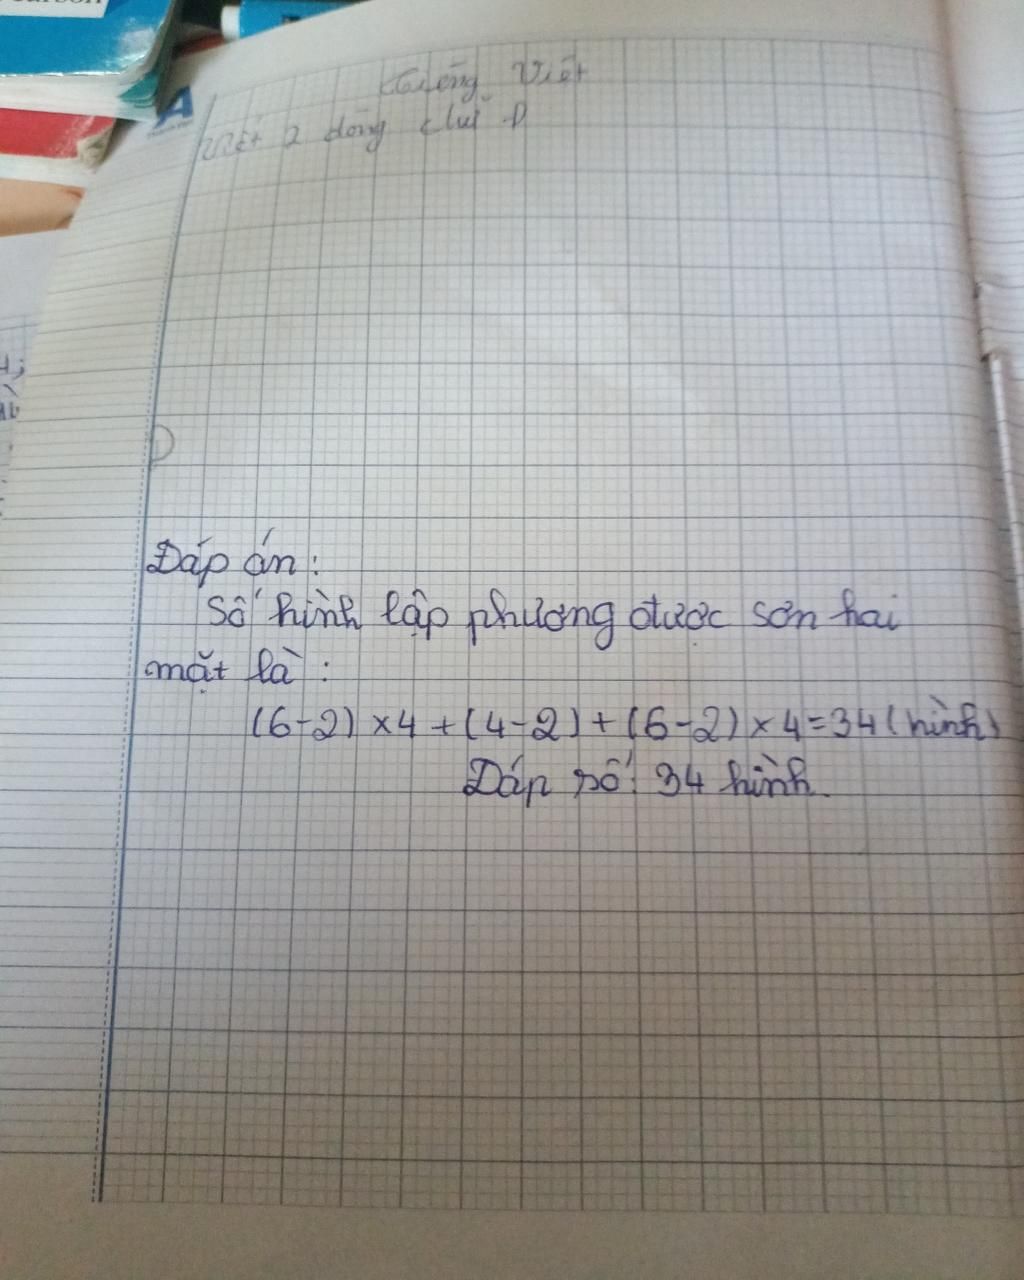 Tiếng Việt
Viết 2 dòng chữ D
D
Đáp án:
Số hình lập phương được sơn hai
mặt là:
(6-2)×4+(4-2)+(6-2)×4=34(hình)
Đáp số: 34 hình.